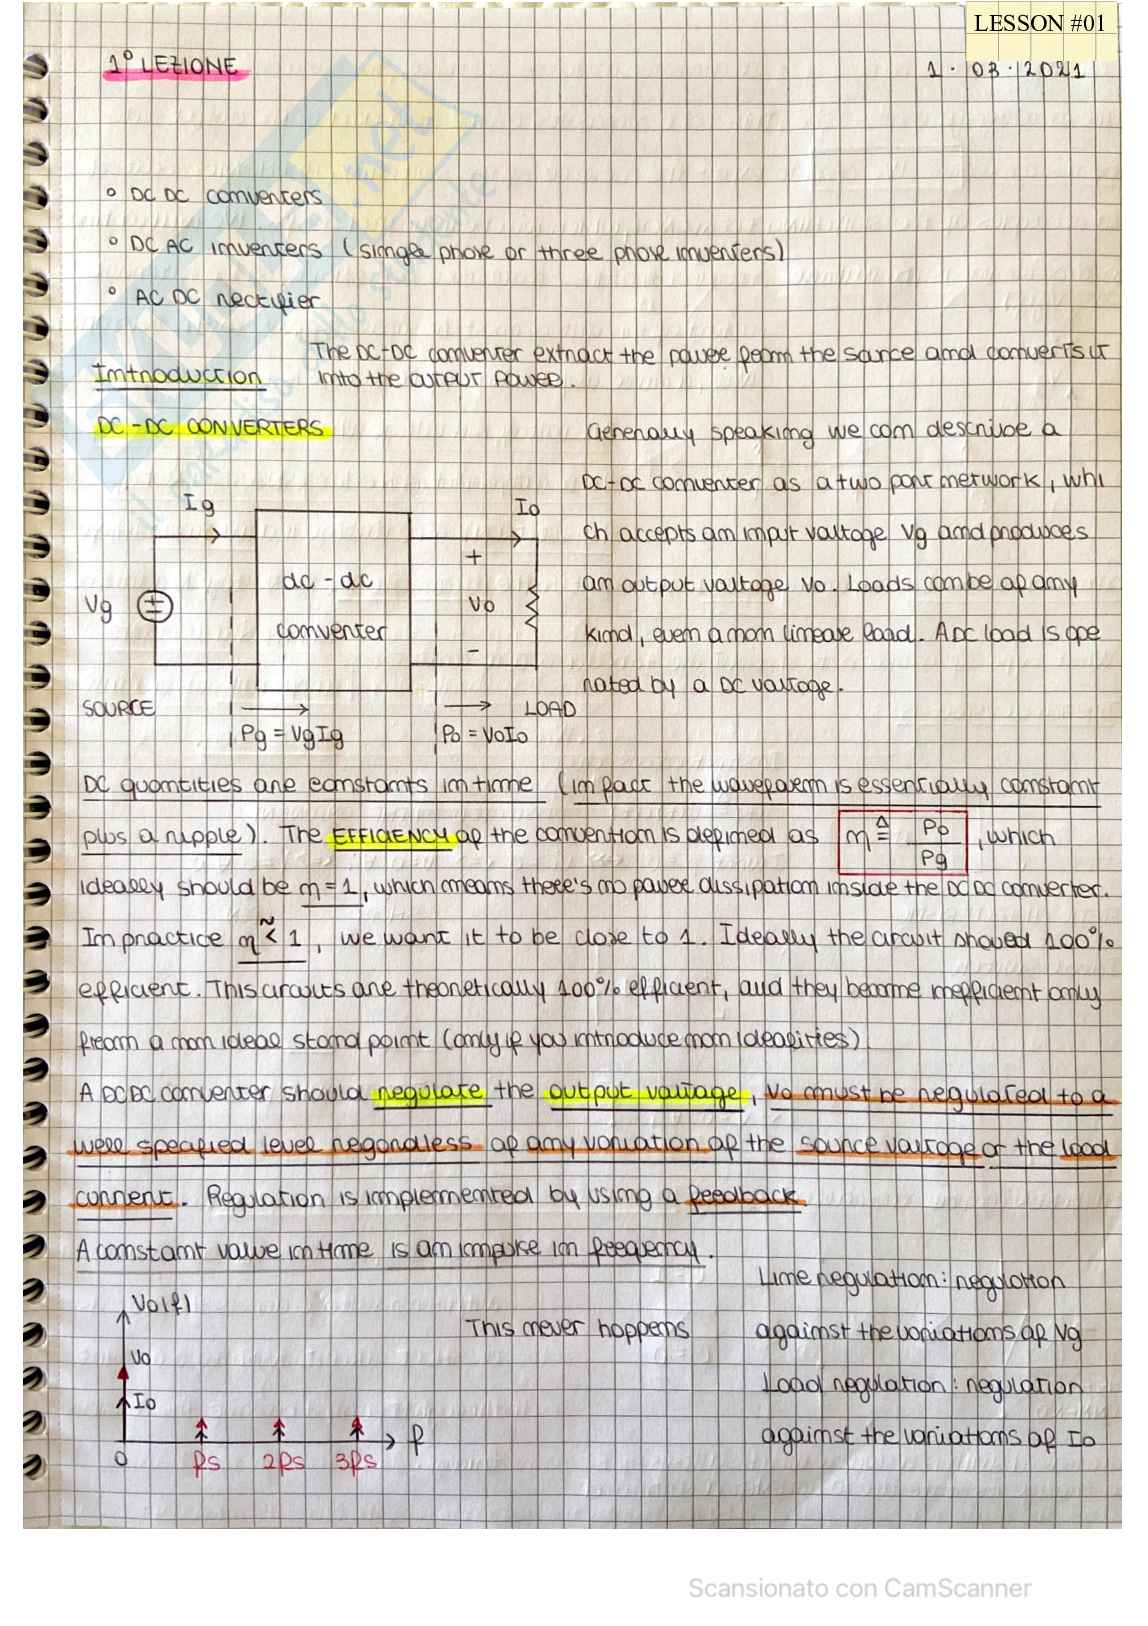 LESSON #01
1° LEZIONE
1.03.2021
° DC DC converters
° DC AC inverters (single phase or three phase inverters)
° AC DC rectifier
The DC-DC converter extract the power from the source and converts it
Introduction into the output power.
DC-DC CONVERTERS
Generally speaking we can describe a
DC-DC converter as a two port network, whi
ch accepts an input voltage Vg and produces
an output voltage Vo. Loads can be of any
kind, even a non linear load. A DC load is ope
rated by a DC voltage.
Ig
Io
dc-dc
converter
Vg
+
Vo
-
SOURCE
LOAD
Pg = VgIg
Po = VoIo
DC quantities are constants in time (in fact the waveform is essentially constant
plus a ripple). The EFFICIENCY of the convention is defined as η ≜ Po/Pg, which
ideally should be η=1, which means there's no power dissipation inside the DC DC converter.
In practice η ≲ 1, we want it to be close to 1. Ideally the circuit should 100%
efficient. This circuits are theoretically 100% efficient, and they become inefficient only
from a non ideal stand point (only if you introduce non idealities)
A DC DC converter should regulate the output voltage, Vo must be regulated to a
well specified level regardless of any variation of the source voltage or the load
current. Regulation is implemented by using a feedback.
A constant value in time is an impulse in frequency.
Line regulation: regulation
against the variations of Vg
Load regulation: regulation
against the variations of Io
This never happens
Vo(f)
Vo
Io
f
0 fs 2fs 3fs
Scansionato con CamScanner